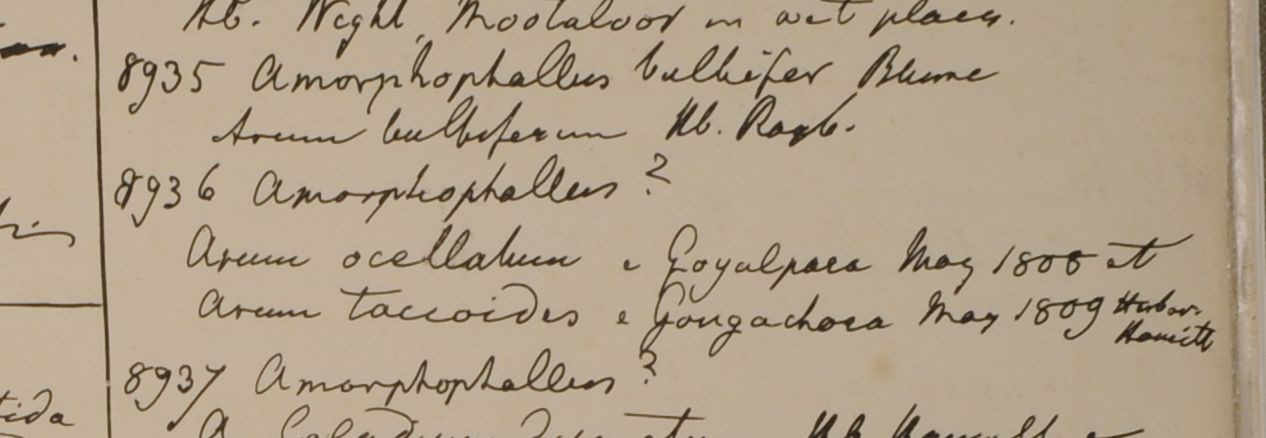 Hb. Wight, Mootaloor in wet places.
8935 Amorphophallus bulbifer Blume
Arum bulbiferum Hb. Roxb.
8936 Amorphophallus?
Arum ocellatum e Goyalpara May 1808 et
Arum taccoides e Gongachora May 1809 Herbar. Hamilt
8937 Amorphophallus?
tida